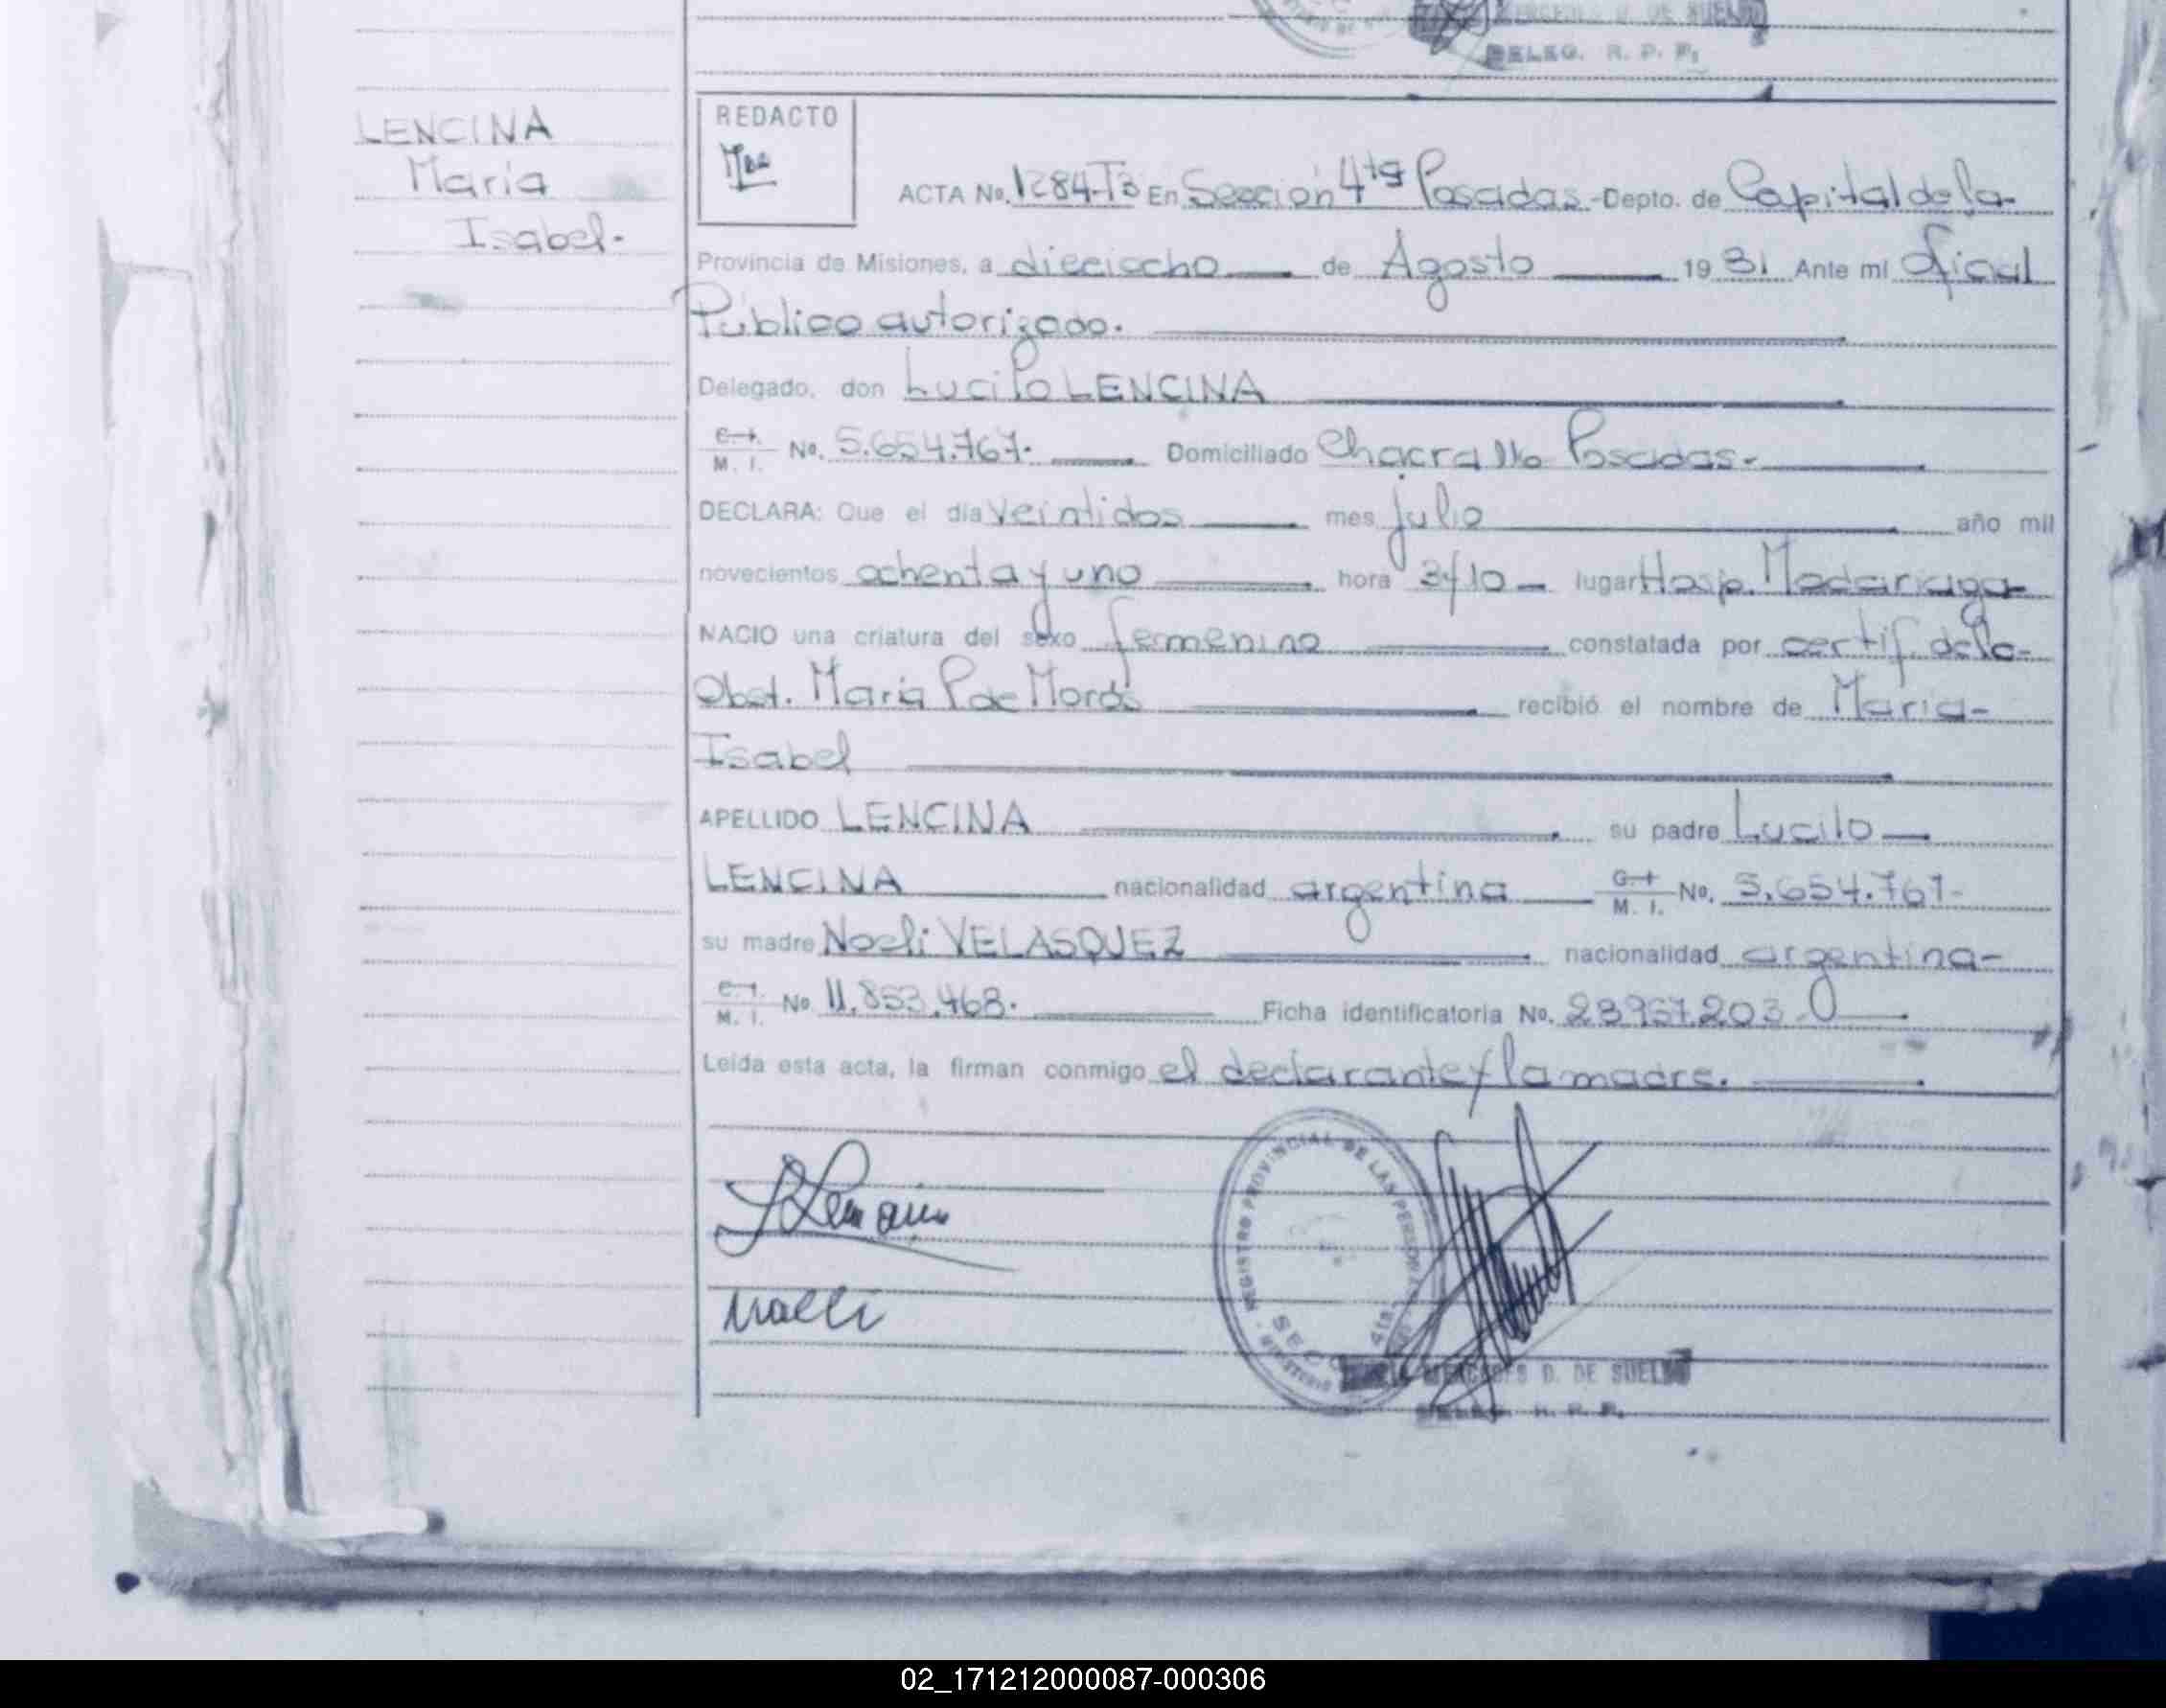 MERCEDES D. DE SUELDO
DELEG. R. P. P.
LENCINA
María
Isabel.
REDACTO
ACTA No. 1284-T3 En Sección 4ta Posadas - Depto. de Capital de la
Provincia de Misiones, a dieciocho de Agosto 1981 Ante mí Oficial
Público autorizado.
Delegado, don Lucilo LENCINA
C. I. M. I. No. 5.654.767. Domiciliado Chacra 116 Posadas.
DECLARA: Que el día veintidos mes julio año mil
novecientos ochenta y uno hora 3y10 lugar Hosp. Madariaga
NACIO una criatura del sexo femenino constatada por certif. de la
Obst. María P de Morás recibió el nombre de María
Isabel
APELLIDO LENCINA su padre Lucilo
LENCINA nacionalidad argentina C. I. M. I. No. 5.654.767
su madre Noeli VELASQUEZ nacionalidad argentina
C. I. M. I. No. 11.853.468. Ficha identificatoria No. 28957.203
Leída esta acta, la firman conmigo el declarante y la madre.
L Lencina
Noeli
REGISTRO PROVINCIAL DE LAS PERSONAS
MINISTERIO
SECC 4ta
MERCEDES D. DE SUELDO
DELEG. R. P. P.
02_171212000087-000306